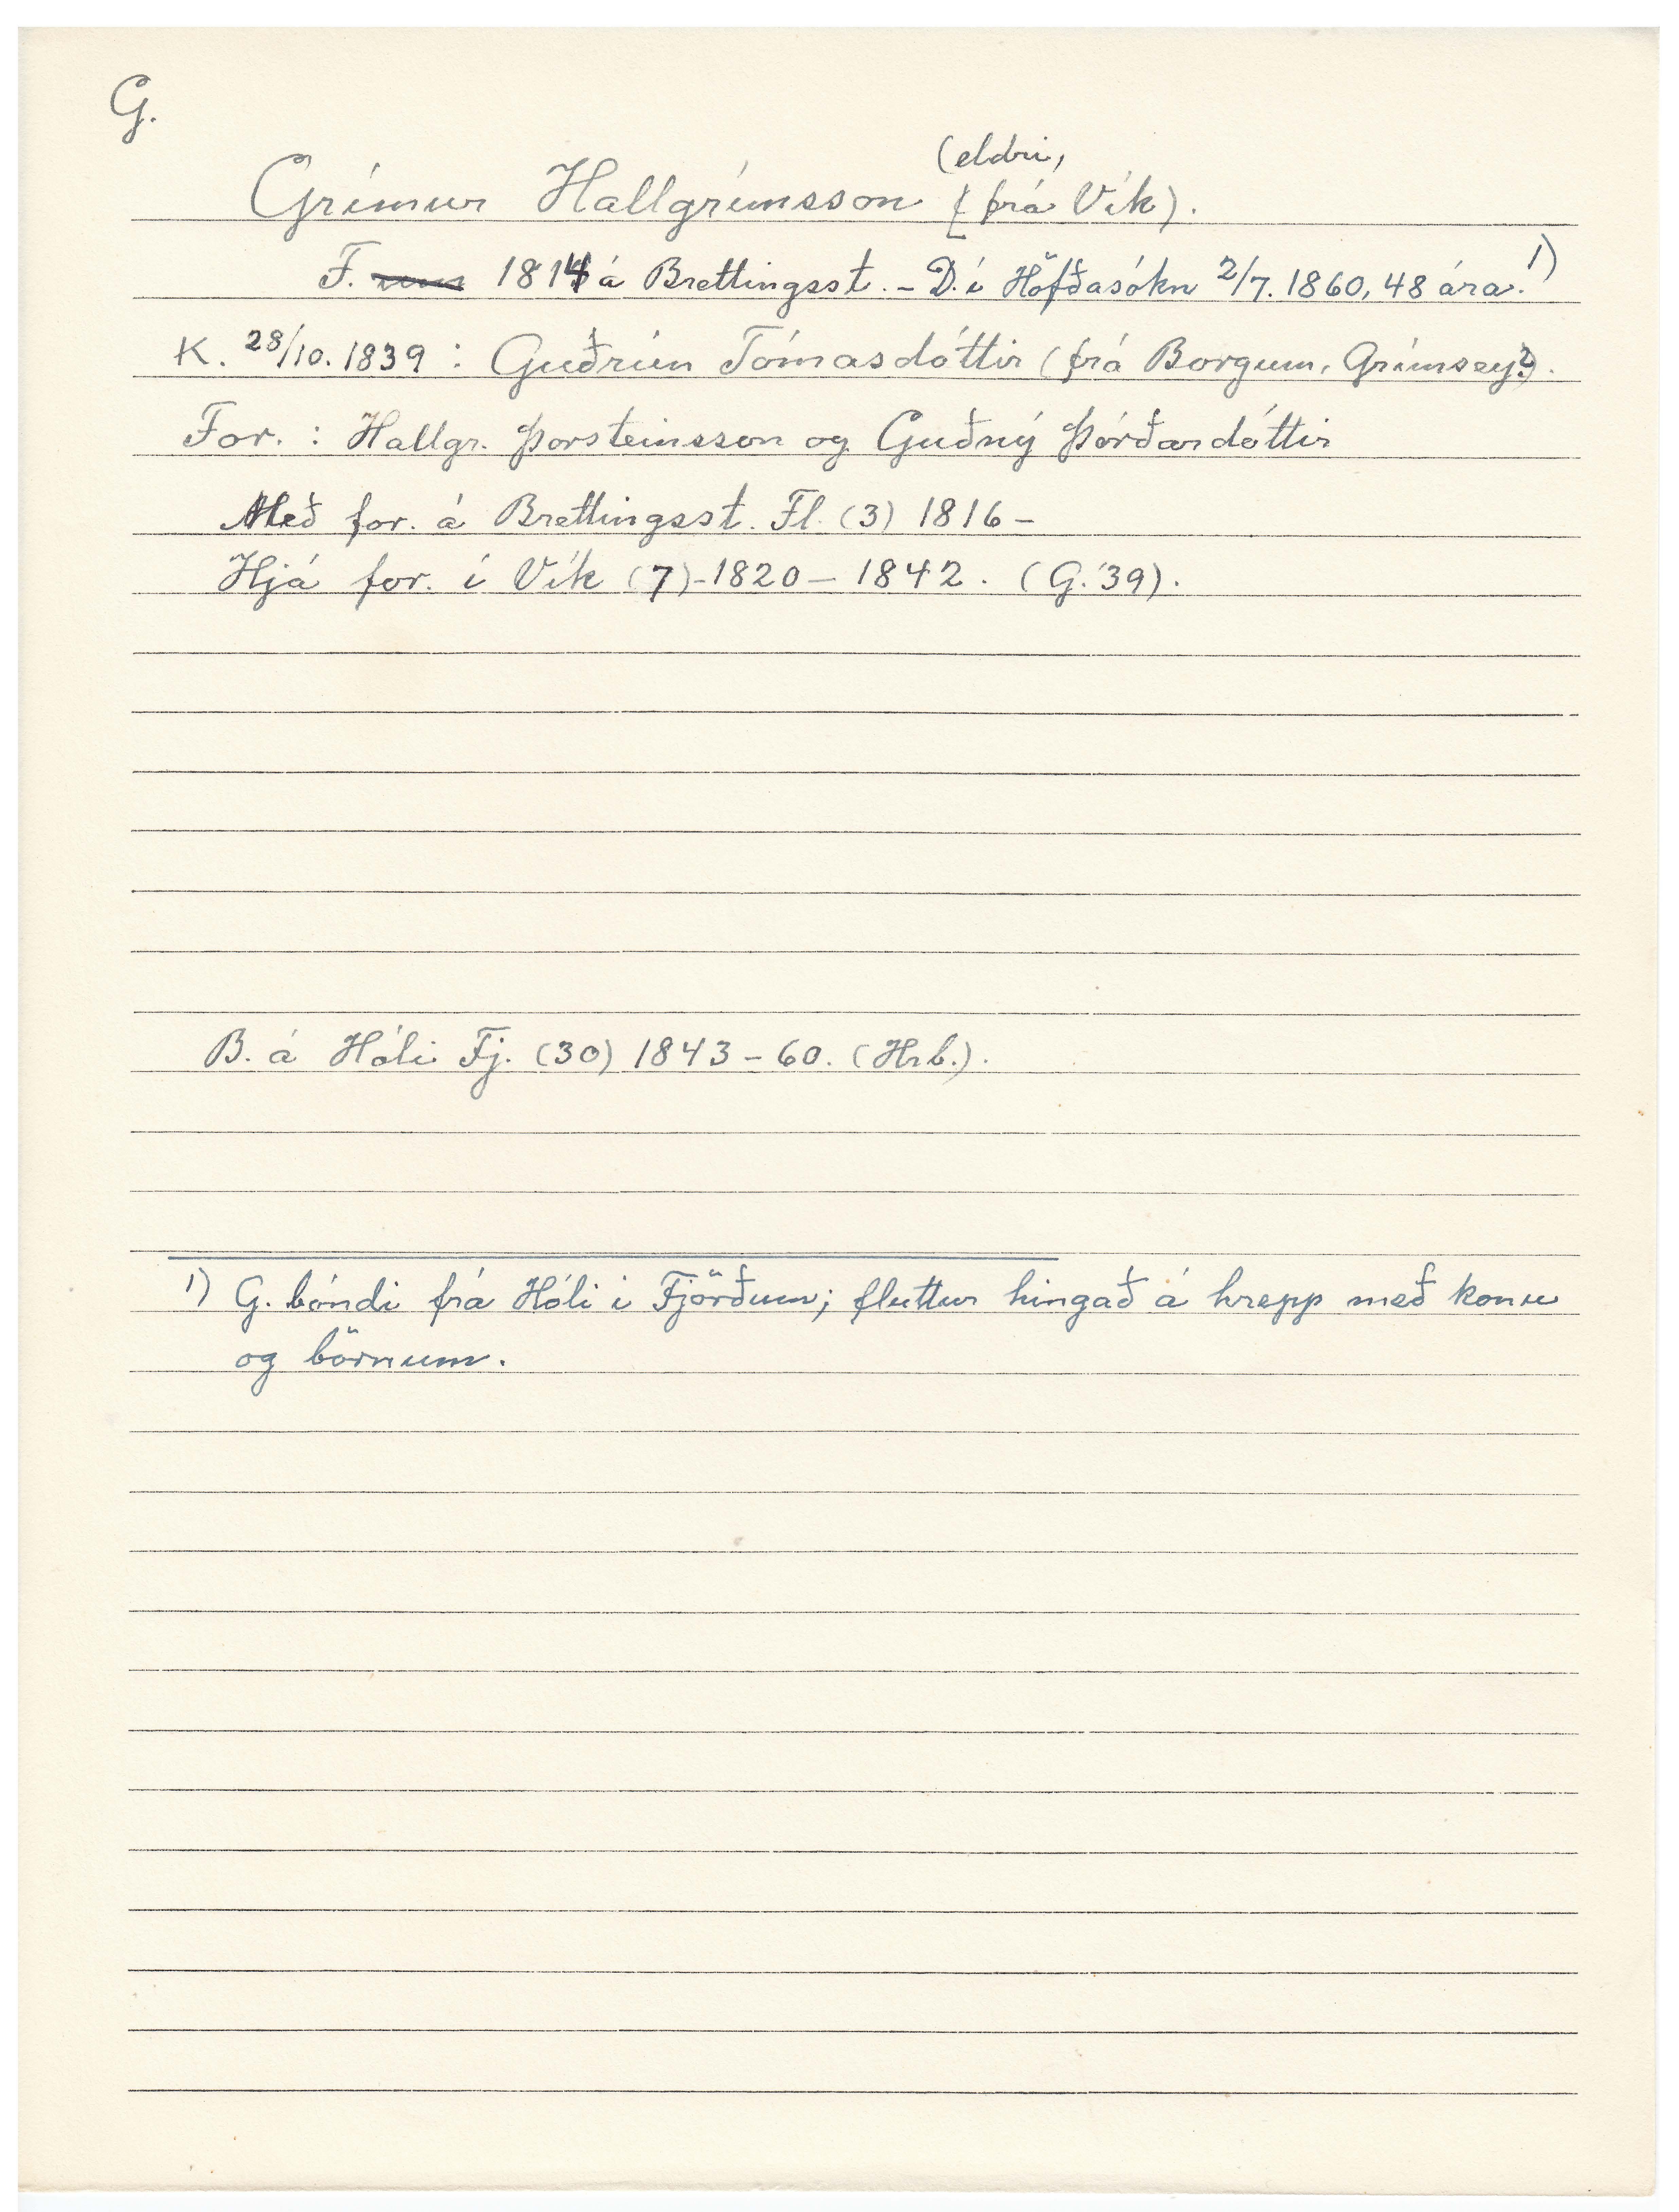 G.
(eldri,
Grímur Hallgrímsson (frá Vík).
F. 1814 á Brettingsst. - D. í Höfðasókn 2/7. 1860, 48 ára. 1)
K. 28/10. 1839 : Guðrún Tómasdóttir (frá Borgum, Grímsey?).
For. : Hallgr. Þorsteinsson og Guðný Þórðardóttir
Með for. á Brettingsst. Fl. (3) 1816 -
Hjá for. í Vík (7) - 1820 - 1842. (G. '39).
B. á Hóli Fj. (30) 1843 - 60. (Hrb.).
1) G. bóndi frá Hóli í Fjörðum; fluttur hingað á hrepp með konu
og börnum.